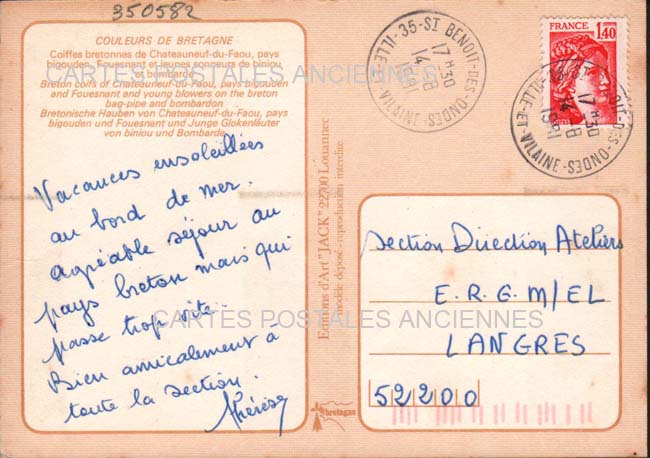 350582
COULEURS DE BRETAGNE
Coiffes bretonnes de Chateauneuf-du-Faou, pays
bigouden, Fouesnant et jeunes sonneurs de biniou
bombarde
Breton coifs of Chateauneuf-du-Faou, pays bigouden
and Fouesnant and young blowers on the breton
bag-pipe and bombardon
Bretonische Hauben von Chateauneuf-du-Faou, pays
bigouden und Fouesnant und Junge Glokenläuter
von biniou und Bombarde
CARTES POSTALES ANCIENNES
Vacances ensoleillées
au bord de mer.
agréable séjour au
pays breton mais qui
passe trop vite..
Bien amicalement à
toute la section.
Thérèse
CARTES POSTALES ANCIENNES
Editions d'Art "JACK" 22700 Louannec
modèle déposé - reproduction interdite
bretagne
35-ST BENOIT-DES-ONDES
ILLE-ET-VILAINE
17 H 30
14 -8
1981
FRANCE
1,40
35-ST BENOIT-DES-ONDES
ILLE-ET-VILAINE
17 H 30
14 -8
1981
Section Direction Ateliers
E.R.G.M/EL
LANGRES
52200